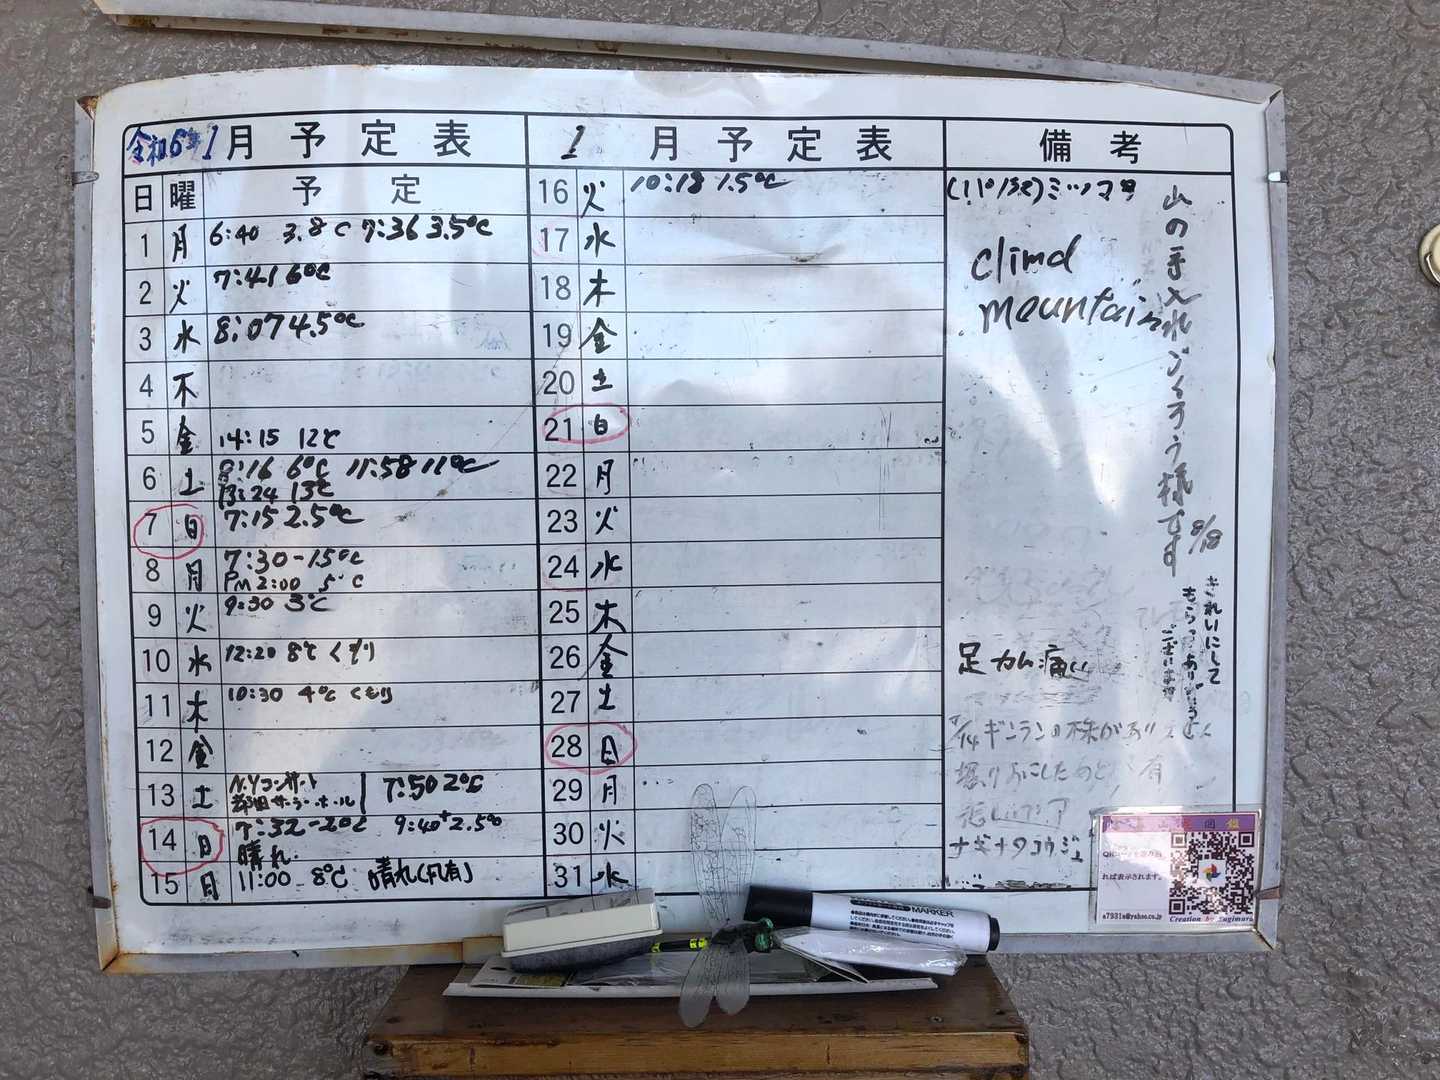 令和6年1月予定表
日 曜 予定
1 月 6:40 3.8℃ 7:36 3.5℃
2 火 7:41 6℃
3 水 8:07 4.5℃
4 木
5 金 14:15 12℃
6 土 8:16 6℃ 11:58 11℃
13:24 13℃
7 日 7:15 2.5℃
8 月 7:30 -1.5℃
PM 2:00 5℃
9 火 9:30 3℃
10 水 12:20 8℃ くもり
11 木 10:30 4℃ くもり
12 金
13 土 N.Yコンサート 7:50 2℃
14 日 7:32 -2℃ 9:40 +2.5℃
晴れ
15 日 11:00 8℃ 晴れ(風有)
1月予定表
16 火 10:18 1.5℃
17 水
18 木
19 金
20 土
21 日
22 月
23 火
24 水
25 木
26 金
27 土
28 日
29 月
30 火
31 水
備考
ミツマタ
climd
mountain
山の手入れごくろう様です
8/18
きれいにして
もらってありがとう
ございます
足が痛い
ギンランの株があり
ナギナタコウジュ
れば表示されます。
a7931s@yahoo.co.jp
Creation by Sugimura
MARKER